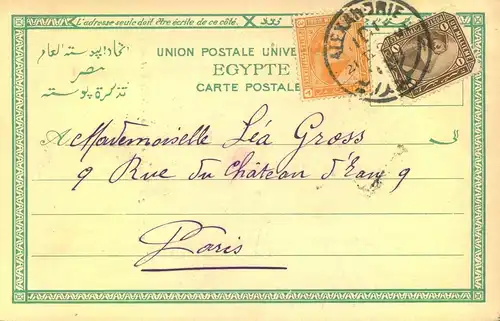 L'adresse seule doit être écrite de ce côté.
اتحاد البوسته العام
مصر
تذكرة بوسته
UNION POSTALE UNIVER
EGYPTE
CARTE POSTALE
ALEXANDRIE
A Mademoiselle Léa Gross
الى
9 Rue du Château d'Eau 9
Paris